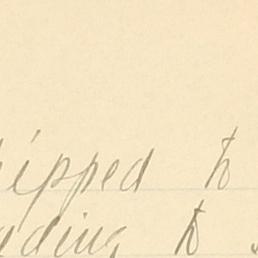 hipped to
ading to